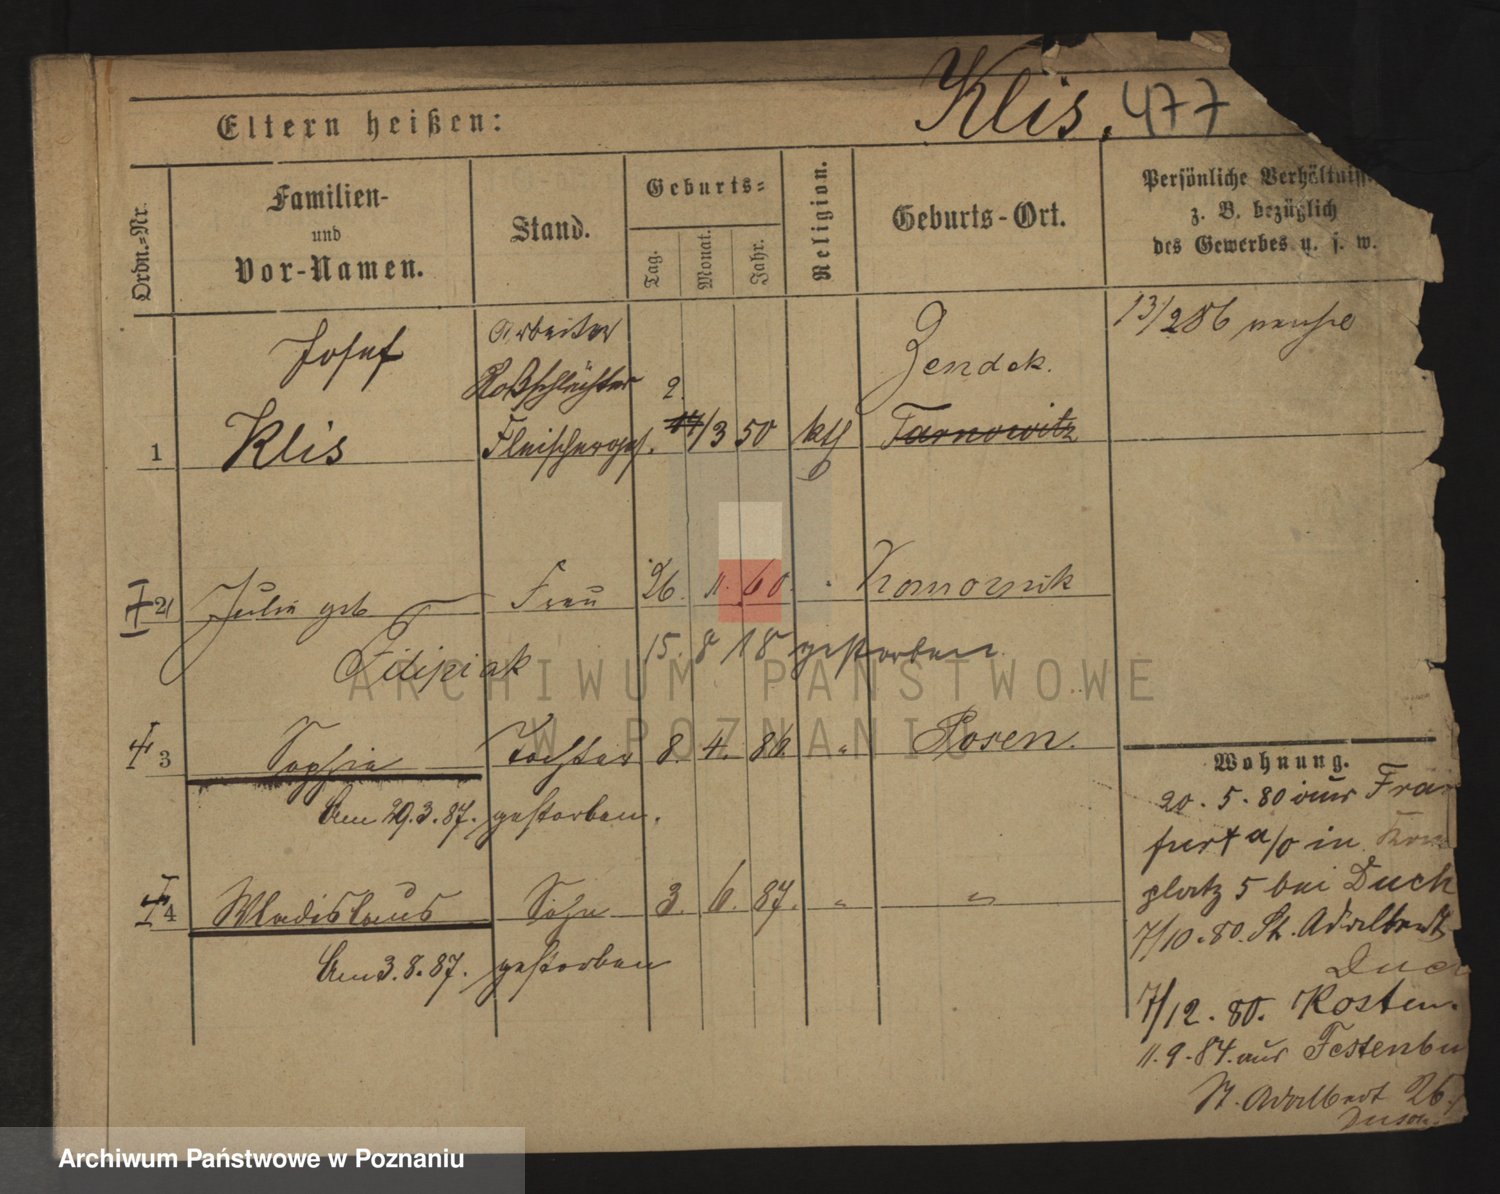 Klis. 477
Eltern heißen:
Ordn.=Nr.
Familien-
und
Vor-Namen.
Stand.
Geburts=
Tag.
Monat.
Jahr.
Religion.
Geburts-Ort.
Persönliche Verhältniss
z. B. bezüglich
des Gewerbes u. s. w.
Josef
Arbeiter
Roßschlächter
2.
Zendek.
13/286
1 Klis Fleischerges. 14/3 50 kth Tarnowitz
2 Julie geb Frau 26. 11. 60. Komornik
Filipiak 15. 8 18 gestorben
3 Sophie Tochter 8. 4. 86. " Posen.
Am 29.3.87. gestorben.
4 Wladislaus Sohn 3. 6. 87. " "
Am 3.8.87. gestorben
Wohnung.
20. 5. 80 aus Fra
furt a/o in
platz 5 bei Duch
7/10. 80. St. Adalbert
Duc
7/12. 80. Kosten.
11. 9. 84. aus Festenbu
St. Adalbert 26.
ARCHIWUM PAŃSTWOWE
W POZNANIU
Archiwum Państwowe w Poznaniu